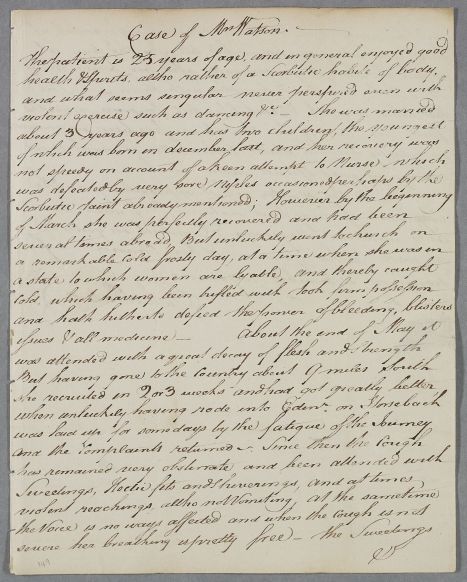 Case of Mrs Watson.
The patient is 25 years of age, and in general enjoyed good
health & spirits, altho rather of a Scorbutic habite of body,
and what seems singular never perspired even with
violent exercise such as dancing &c. — She was married
about 3 years ago and has two children, the youngest
of which was born in december last, and her recovery was
not speedy on account of a keen attempt to Nurse — which
was defeated by very sore Niples occasioned perhaps by the
Scorbutic taint already mentioned; However by the beginning
of March she was perfectly recovered and had been
several times abroad. But unluckily went to church on
a remarkable Cold frosty day, at a time when she was in
a state to which women are lyable, and thereby caught
Cold, which having been trifled with took firm possession
and hath hitherto defied the power of bleeding, blisters
issues & all medicine — About the end of May it
was attended with a great decay of flesh and strength
But having gone to the Country about 9 miles South
she recruited in 2 or 3 weeks and had got greatly better
when unluckily having rode into Edenr. on Horseback
was laid up for some days by the fatigue of the Journey
and the Complaints returned. Since then the Cough
has remained very obstinate, and been attended with
Sweetings, Hectic fits and shiverings, and at times
violent reachings, altho not Vomiting, at the same time
the Voice is no ways affected and when the Cough is not
severe her breathing is pretty free — the Sweetings